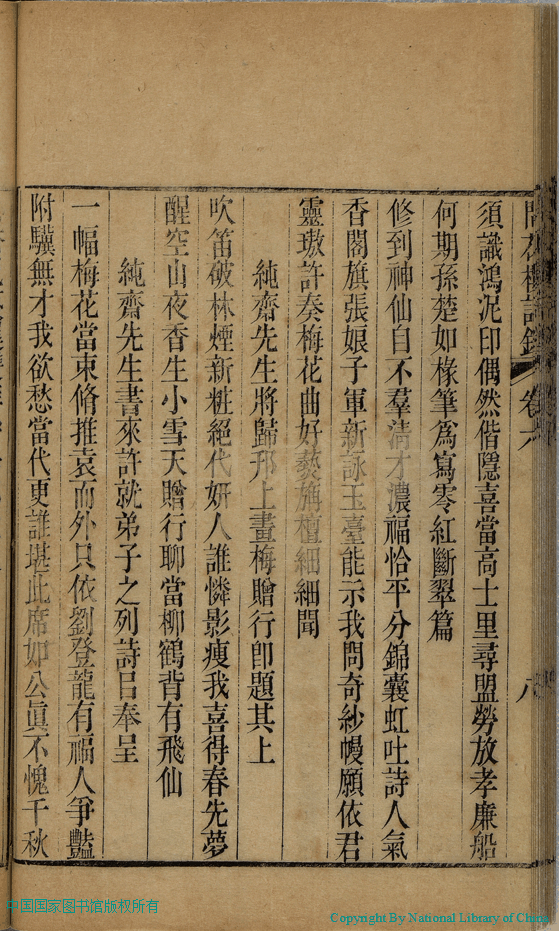 須識鴻泥印偶然偕隱喜當高士里尋盟勞放孝廉船
何期孫楚如椽筆爲寫零紅斷翠篇
修到神仙自不羣清才濃福恰平分錦囊虹吐詩人氣
香閣旗張娘子軍新詠玉臺能示我問奇紗幔願依君
靈璈許奏梅花曲好爇旃檀細細聞
純齋先生將歸邘上畫梅贈行卽題其上
吹笛破林煙新粧絕代妍人誰憐影瘦我喜得春先夢
醒空山夜香生小雪天贈行聊當柳鶴背有飛仙
純齋先生書來許就弟子之列詩㠯奉呈
一幅梅花當束脩推袁而外只依劉登龍有福人爭豔
附驥無才我欲愁當代更誰堪此席如公眞不愧千秋
卷六
八
中国国家图书馆版权所有
Copyright By National Library of China